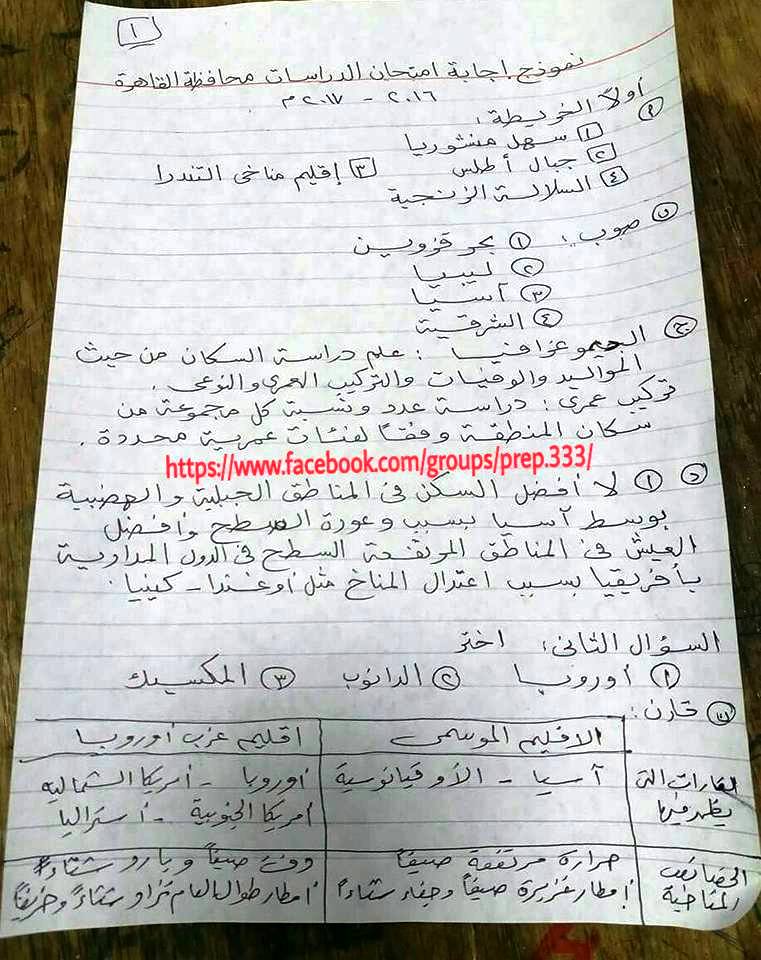 ١
نموذج إجابة امتحان الدراسات محافظة القاهرة
٢٠١٦ - ٢٠١٧ م
أولاً الخريطة:
١ سهل منشوريا
٢ جبال أطلس ٣ إقليم مناخى التندرا
٤ السلالة الزنجية
ب صوب: ١ بحر قزوين
٢ ليبيا
٣ آسيا
٤ الشرقية
ج الديموغرافيا: علم دراسة السكان من حيث
المواليد والوفيات والتركيب العمرى والنوعى.
تركيب عمرى: دراسة عدد ونسبة كل مجموعة من
سكان المنطقة وفقاً لفئات عمرية محددة.
https://www.facebook.com/groups/prep.333/
د ١ لا أفضل السكن فى المناطق الجبلية والهضبية
بوسط آسيا بسبب وعورة السطح وأفضل
العيش فى المناطق المرتفعة السطح فى الدول المدارية
بأفريقيا بسبب اعتدال المناخ مثل أوغندا - كينيا.
السؤال الثانى: اختر
١ أوروبا ٢ الدانوب ٣ المكسيك
قارن:
الاقليم الموسمى اقليم غرب أوروبا
القارات التى آسيا - الأوقيانوسية أوروبا - أمريكا الشماليه
يظهر فيها أمريكا الجنوبية - أستراليا
الخصائص حرارة مرتفعة صيفاً دفئ صيفاً وبارد شتاءً
المناخية أمطار غزيرة صيفاً وجفاء شتاءاً أمطار طوال العام تزداد شتاءً وخريفاً